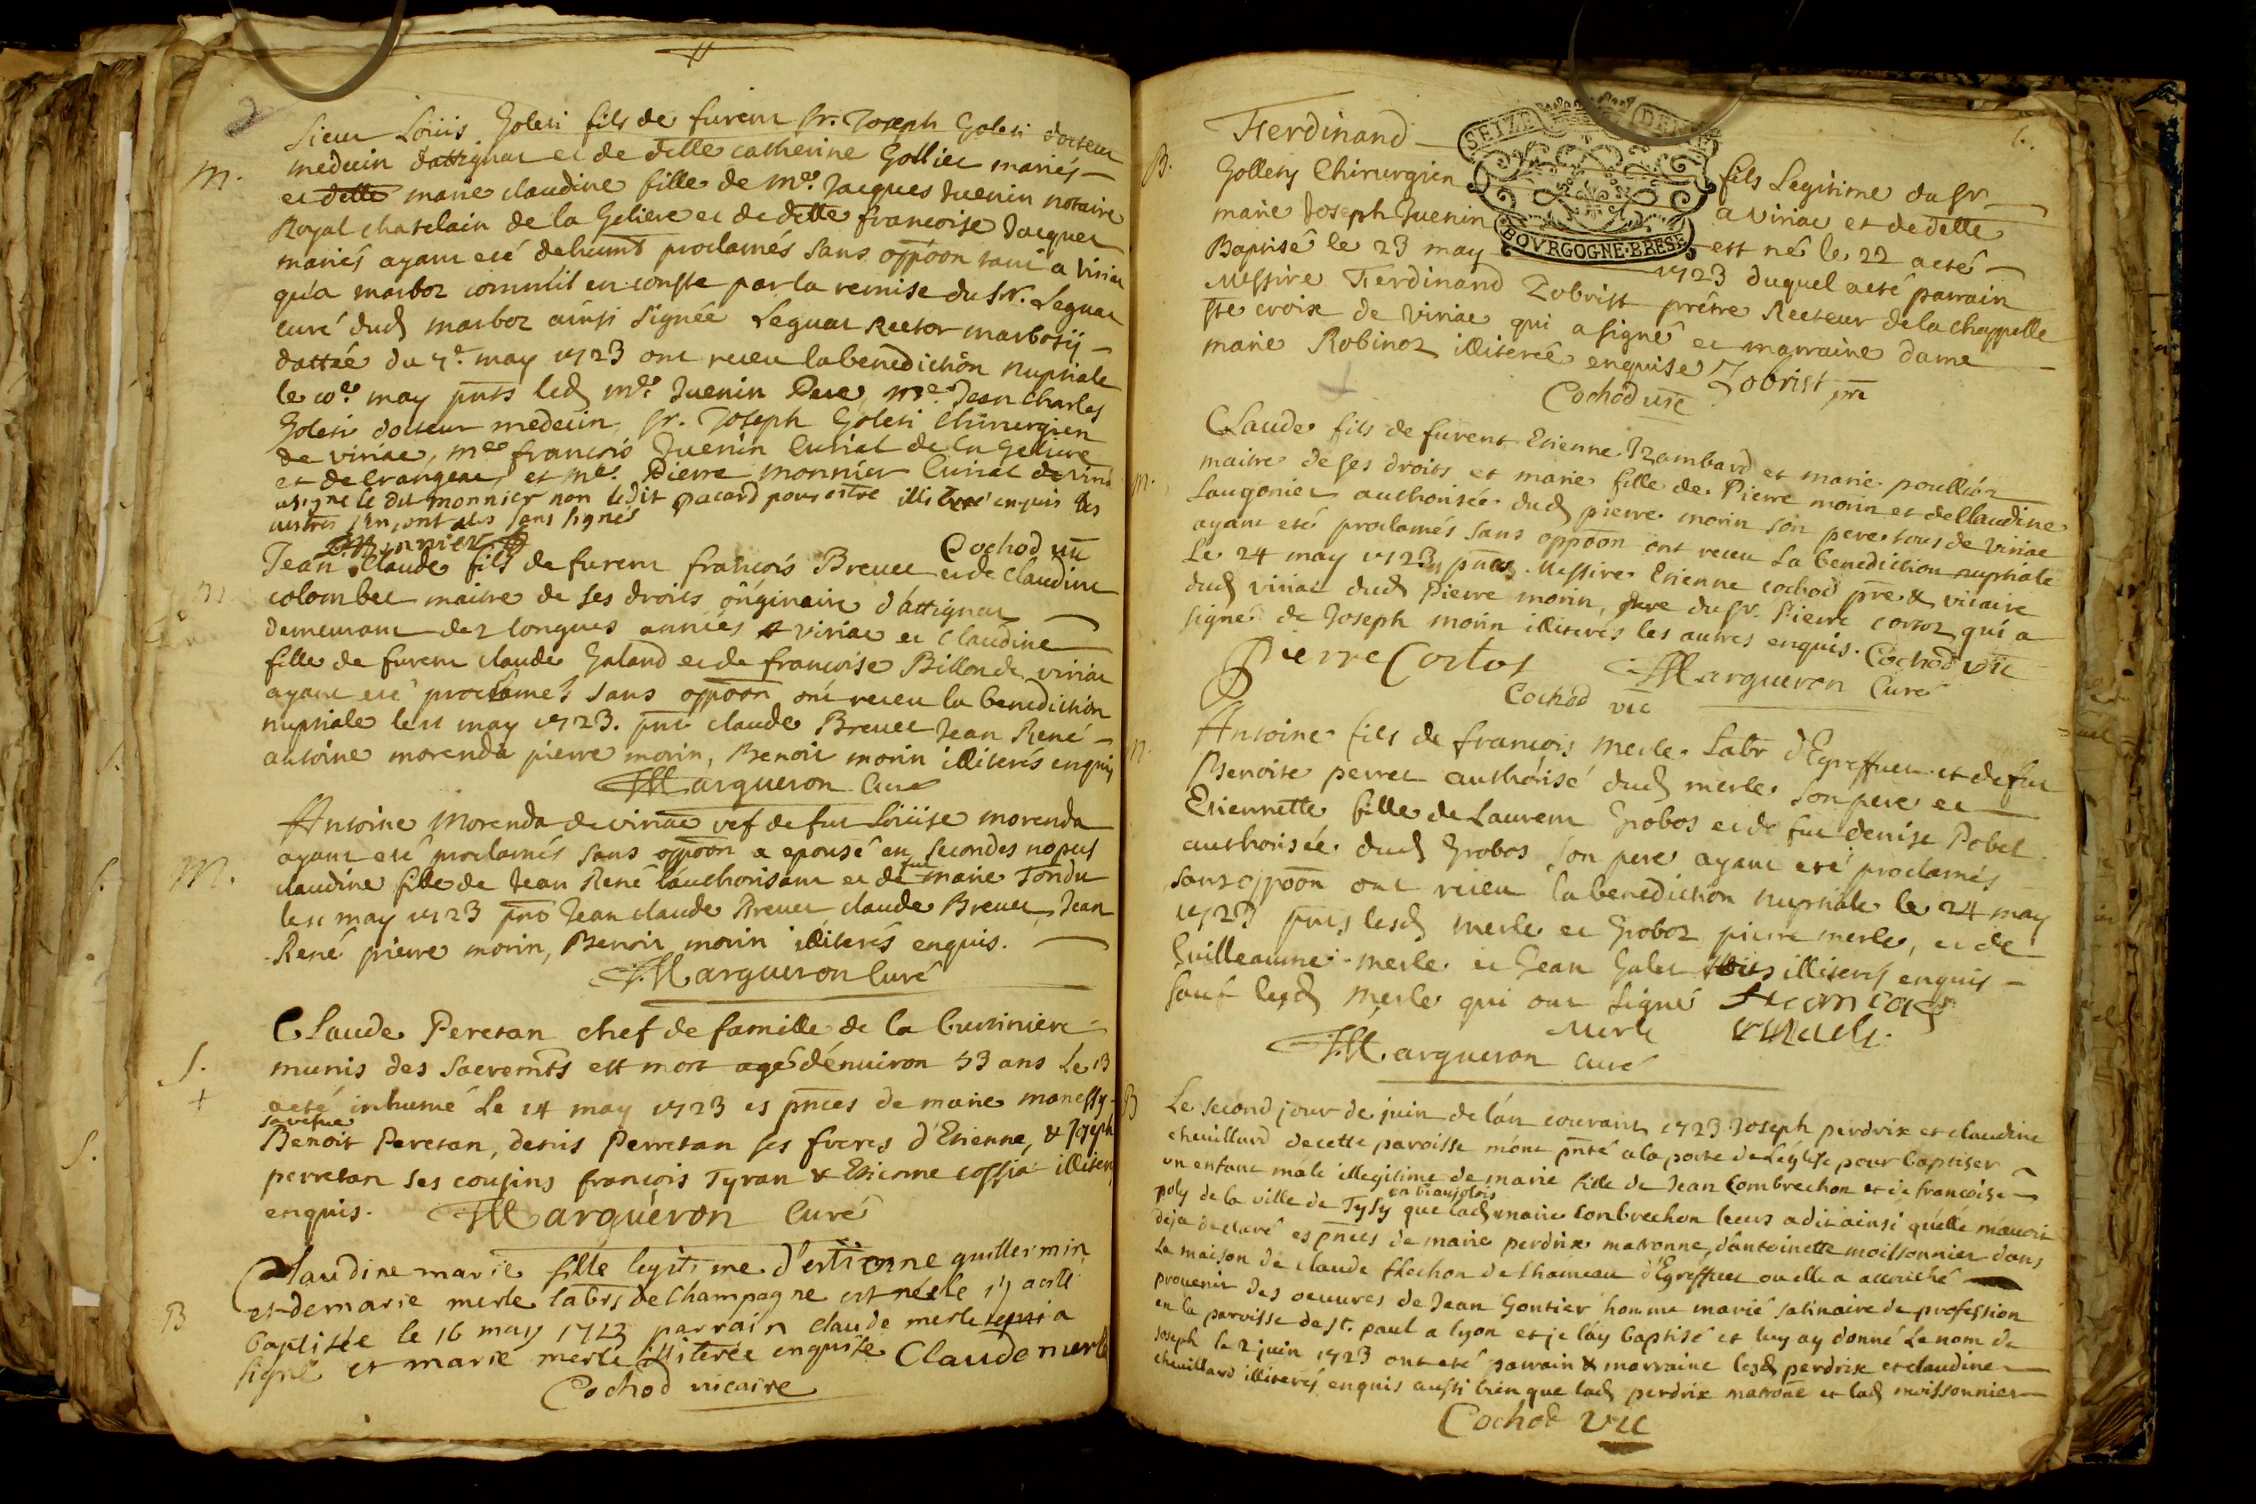 Sieur Loüis Goleti fils de furent sr. Joseph Goleti docteur
medecin dattignat et de delle catherine Gollier mariés
M.
et delle marie claudine fille de mre. Jacques Juenin notaire
Royal chatelain de la Geliere et de delle francoise Jacquet
mariés ayant eté dehument proclamés sans oppoon tant a viriat
qu'a marboz comm'il en conste par la remise du sr. Leguat
curé dud marboz ainsi signée Leguat Rector marbosij
dattée du 7e. may 1723 ont receu la benediction nuptiale
le 10e. may pnts led mre. Juenin Pere, mre. Jean Charles
Goleti docteur medecin, sr. Joseph Goleti Chirurgien
de viriat, mre francois Juenin Curial de la Geliere
et de et mre. Pierre monnier Curial de
a signe le dit monnier non ledit pacard pour estre illitere enquis les
autres s'en ont ales sans signes
Monnier Cochod vic
Jean Claude fils de furent francois Brevet et de claudine
colombet maitre de ses droits originaire d'attignat
demeurant dez longues années a viriat et Claudine
fille de furent claude Galand et de francoise Billon de viriat
ayant eté proclamés sans oppoon ont receu la benediction
nuptiale le 11 may 1723. pnt claude Brevet Jean René
antoine morenda pierre morin, Benoit morin illiterés enquis
Margueron Curé
Antoine Morenda de viriat vef de fut Loüise morenda
ayant eté proclamés sans oppoon a epousé en secondes nopces
M.
claudine fille de Jean René l'authorisant et de fut marie Tondu
le 11 may 1723 pnts Jean claude Brevet claude Brevet, Jean
René pierre morin, Benoit morin illiterés enquis.
Margueron Curé
Claude Peretan chef de famille de la
S.
munis des Sacremts est mort agé d'enuiron 53 ans Le 13
+
aeté inhumé Le 14 may 1723 es pnces de marie
sa vefue
Benoit Peretan, denis Perretan ses freres d'Etienne, & Joseph
perretan ses cousins françois Tyran & Etienne illiter
enquis. Margueron Curé
Claudine marie fille legitime d'estienne guillermin
et de marie merle labrs de Champagne est née le 15 aeté
B
baptisée le 16 may 1723 parrain claude merle a
signé et marie merle illiterée enquise Claude merle
Cochod vicaire
Ferdinand
SEIZE DEN
BOVRGOGNE·BRESSE
fils Legitime du sr.
B.
Gollety Chirurgien a viriat et de delle
marie Joseph Juenin est né le 22 aeté
Baptisé le 23 may 1723 duquel aeté parrain
Messire Ferdinand Zobrist prêtre Recteur de la chappelle
ste croix de viriat qui a signé et marraine dame
marie Robinoz illiterée enquise Zobrist ptre
Cochod vic
Claude fils de furent Etienne Izambard et marie
maitre de ses droits et marie fille de Pierre morin et de Claudine
M.
Laugonier authorisée dud pierre morin son pere tous de viriat
ayant eté proclamés sans oppoon ont receu la benediction nuptiale
Le 24 may 1723 pnts. Messire Etienne cochod pre & vicaire
dud viriat dud Pierre morin, du sr. Pierre cortoz qui a
signé de Joseph morin illiterés les autres enquis. Cochod vic
Pierre Cortos Margueron Curé
Cochod vic
Antoine fils de françois Merle Labr d'Egreffuet et de fut
Benoite perret authorisé dud merle son pere et
Etiennette fille de Laurent Grobos et de fut denise Pobel
authorisée dud Grobos son pere ayant eté proclamés
sans oppoon ont receu la benediction nuptiale le 24 may
1723 pnts lesd Merle et Groboz pierre merle, et de
Guilleaume merle et Jean Galet illiterés enquis
sauf lesd Merle qui ont signé
Merle
Margueron Curé
B
Le second jour de juin de l'an courant 1723 Joseph perdrix et claudine
cheuillard de cette paroisse m'ont pnté a la porte de L'église pour baptiser
un enfant mâle illegitime de marie fille de Jean Combrechon et de françoise
poly de la ville de Tysy en beaujolois que lad marie Combrechon leurs a dit ainsi qu'elle m'auoit
deja declaré es pnces de marie perdrix matronne, d'antoinette moissonnier dans
La maison de claude de L'hameau d'Egreffuet ou elle a accouché
prouenir des oeuures de Jean Gontier homme marié satinaire de profession
en la paroisse de St. paul a lyon et je l'ay baptisé et luy ay donné Le nom de
Joseph le 2 juin 1723 ont eté parrain & marraine lesd perdrix et claudine
cheuillard illiterés enquis aussi bien que lad perdrix matrone et lad moissonnier
Cochod vic